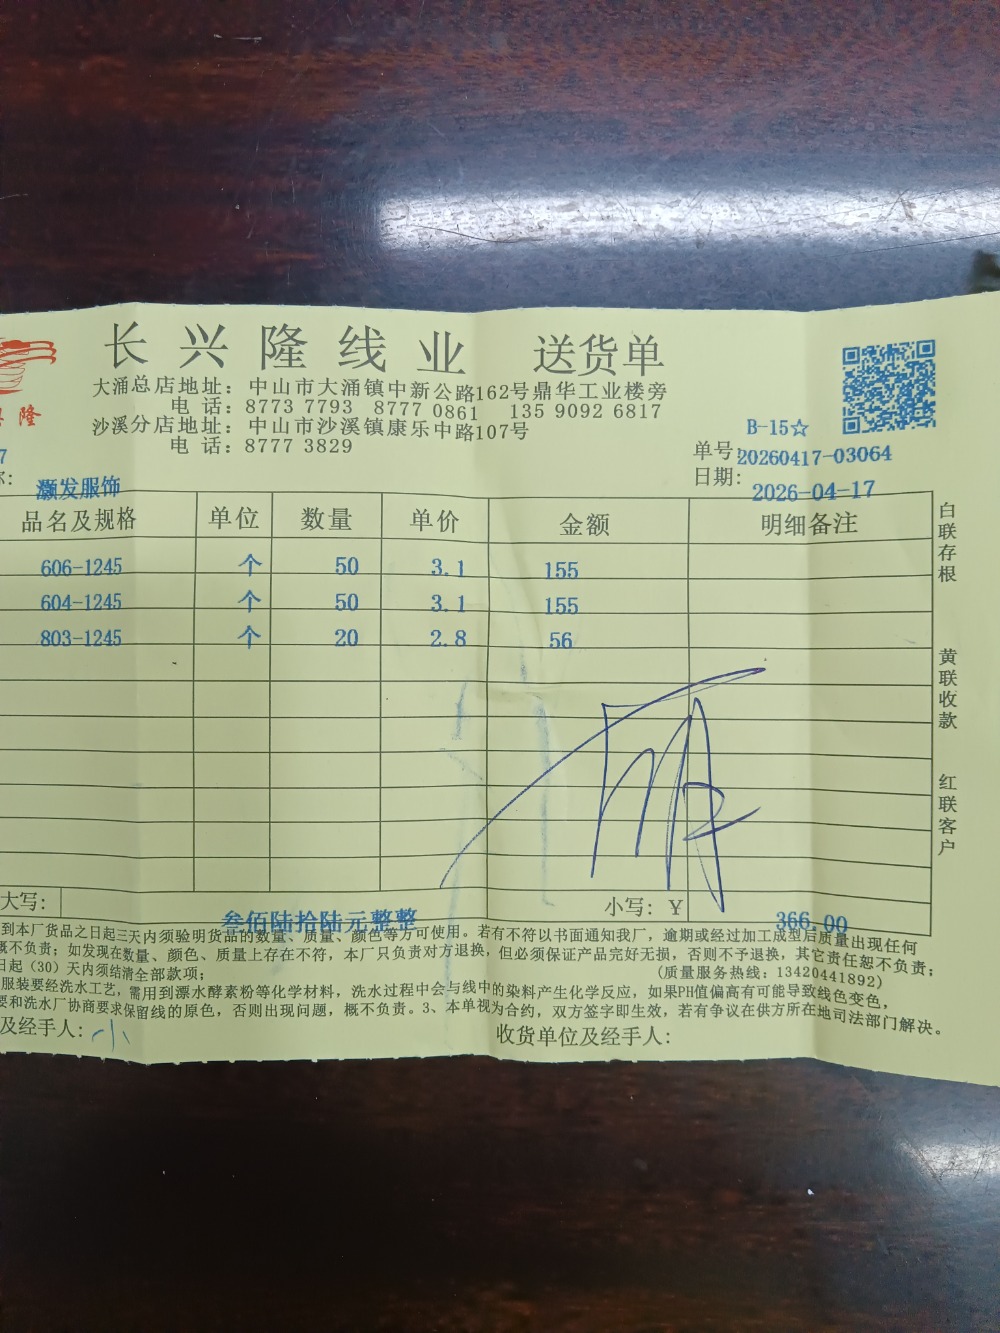 长兴隆线业 送货单
隆
大涌总店地址：中山市大涌镇中新公路162号鼎华工业楼旁
电 话：8773 7793 8777 0861 135 9092 6817
沙溪分店地址：中山市沙溪镇康乐中路107号
电 话：8777 3829
B-15☆
单号：20260417-03064
7
日期：2026-04-17
灏发服饰
品名及规格 单位 数量 单价 金额 明细备注
606-1245 个 50 3.1 155
604-1245 个 50 3.1 155
803-1245 个 20 2.8 56
白联存根
黄联收款
红联客户
大写：叁佰陆拾陆元整整 小写：¥ 366.00
到本厂货品之日起三天内须验明货品的数量、质量、颜色等方可使用。若有不符以书面通知我厂，逾期或经过加工成型后质量出现任何
概不负责；如发现在数量、颜色、质量上存在不符，本厂只负责对方退换，但必须保证产品完好无损，否则不予退换，其它责任恕不负责；
日起（30）天内须结清全部款项； （质量服务热线：13420441892）
服装要经洗水工艺，需用到漂水酵素粉等化学材料，洗水过程中会与线中的染料产生化学反应，如果PH值偏高有可能导致线色变色，
要和洗水厂协商要求保留线的原色，否则出现问题，概不负责。3、本单视为合约，双方签字即生效，若有争议在供方所在地司法部门解决。
及经手人：小 收货单位及经手人：